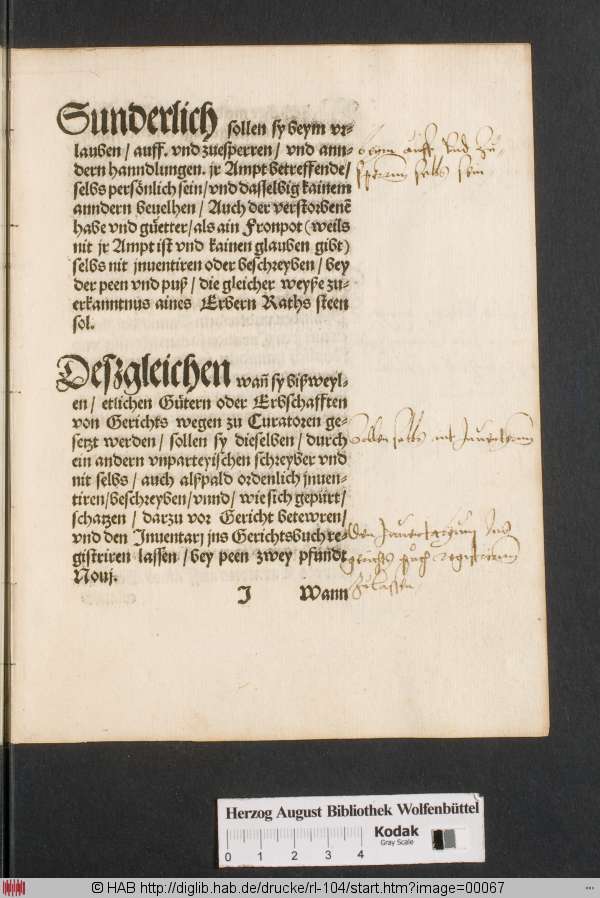 Sunderlich sollen sy beym vr-
lauben / auff. vnd zuesperren / vnd ann-
dern hanndlungen. jr Ampt betreffende /
selbs persönlich sein / vnd dasselbig kainem
anndern beuelhen / Auch der verstorbenē
habe vnd güetter / als ain Fronpot (weils
nit jr Ampt ist vnd kainen glauben gibt)
selbs nit jnuentiren oder beschreyben / bey
der peen vnd puß / die gleicher weyße zu-
erkanntnus aines Erbern Raths steen
sol.
Deßgleichen wañ sy bißweyl-
en / etlichen Gütern oder Erbschafften
von Gerichts wegen zu Curatoren ge-
setzt werden / sollen sy dieselben / durch
ein andern vnparteyischen schreyber vnd
nit selbs / auch alßpald ordenlich jnuen-
tiren / beschreyben / vnnd / wie sich gepürt /
schatzen / darzu vor Gericht betewren /
vnd den Inuentarj jns Gerichtsbuch re-
gistriren lassen / bey peen zwey pfundt
Nouj.
I Wann
auff vnd zu
sperrn selbs sein
Sollen selbs nit
den Inuentarium Ins
gerichts puch registrirn
Zulassen
Herzog August Bibliothek Wolfenbüttel
Kodak
Gray Scale
0 1 2 3 4
© HAB http://diglib.hab.de/drucke/rl-104/start.htm?image=00067